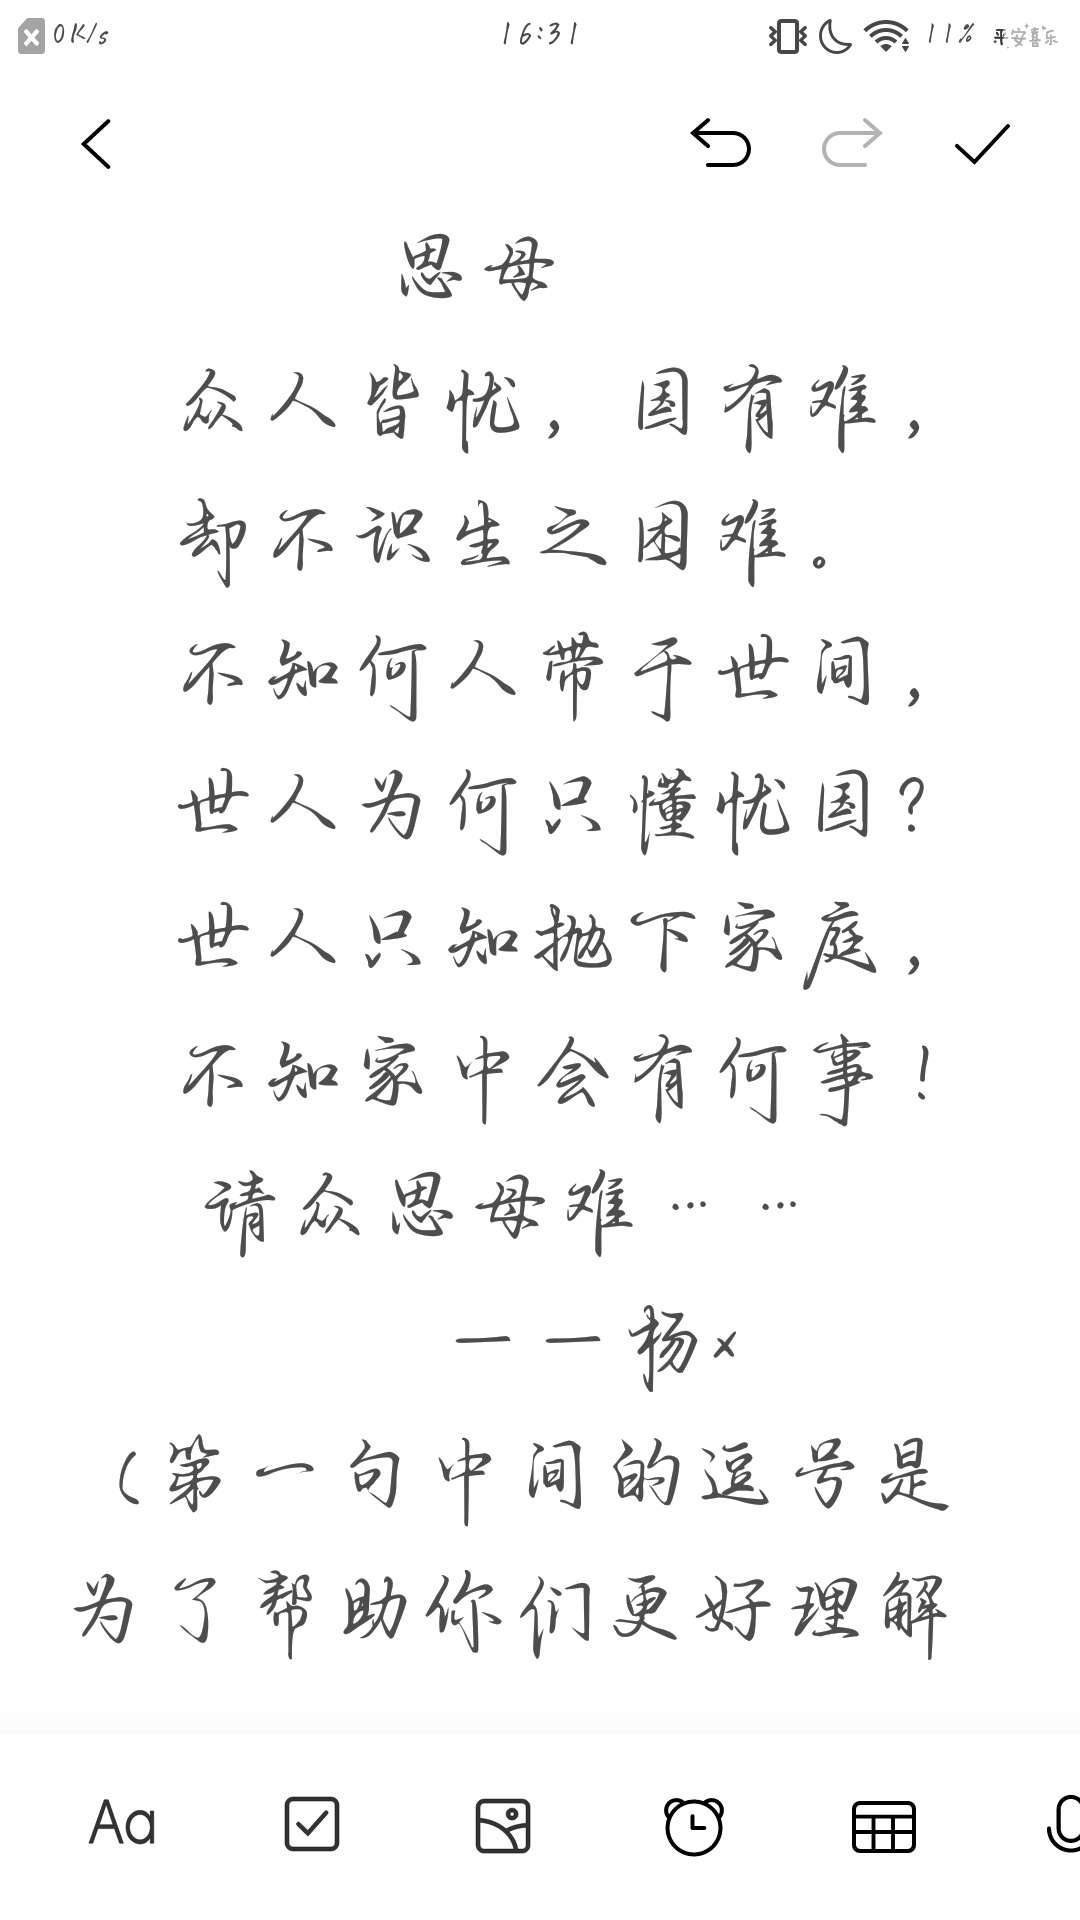 0K/s 16:31 11% 平安喜乐
思母
众人皆忧，国有难，
却不识生之困难。
不知何人带于世间，
世人为何只懂忧国？
世人只知抛下家庭，
不知家中会有何事！
请众思母难……
一一杨×
（第一句中间的逗号是
为了帮助你们更好理解
Aa